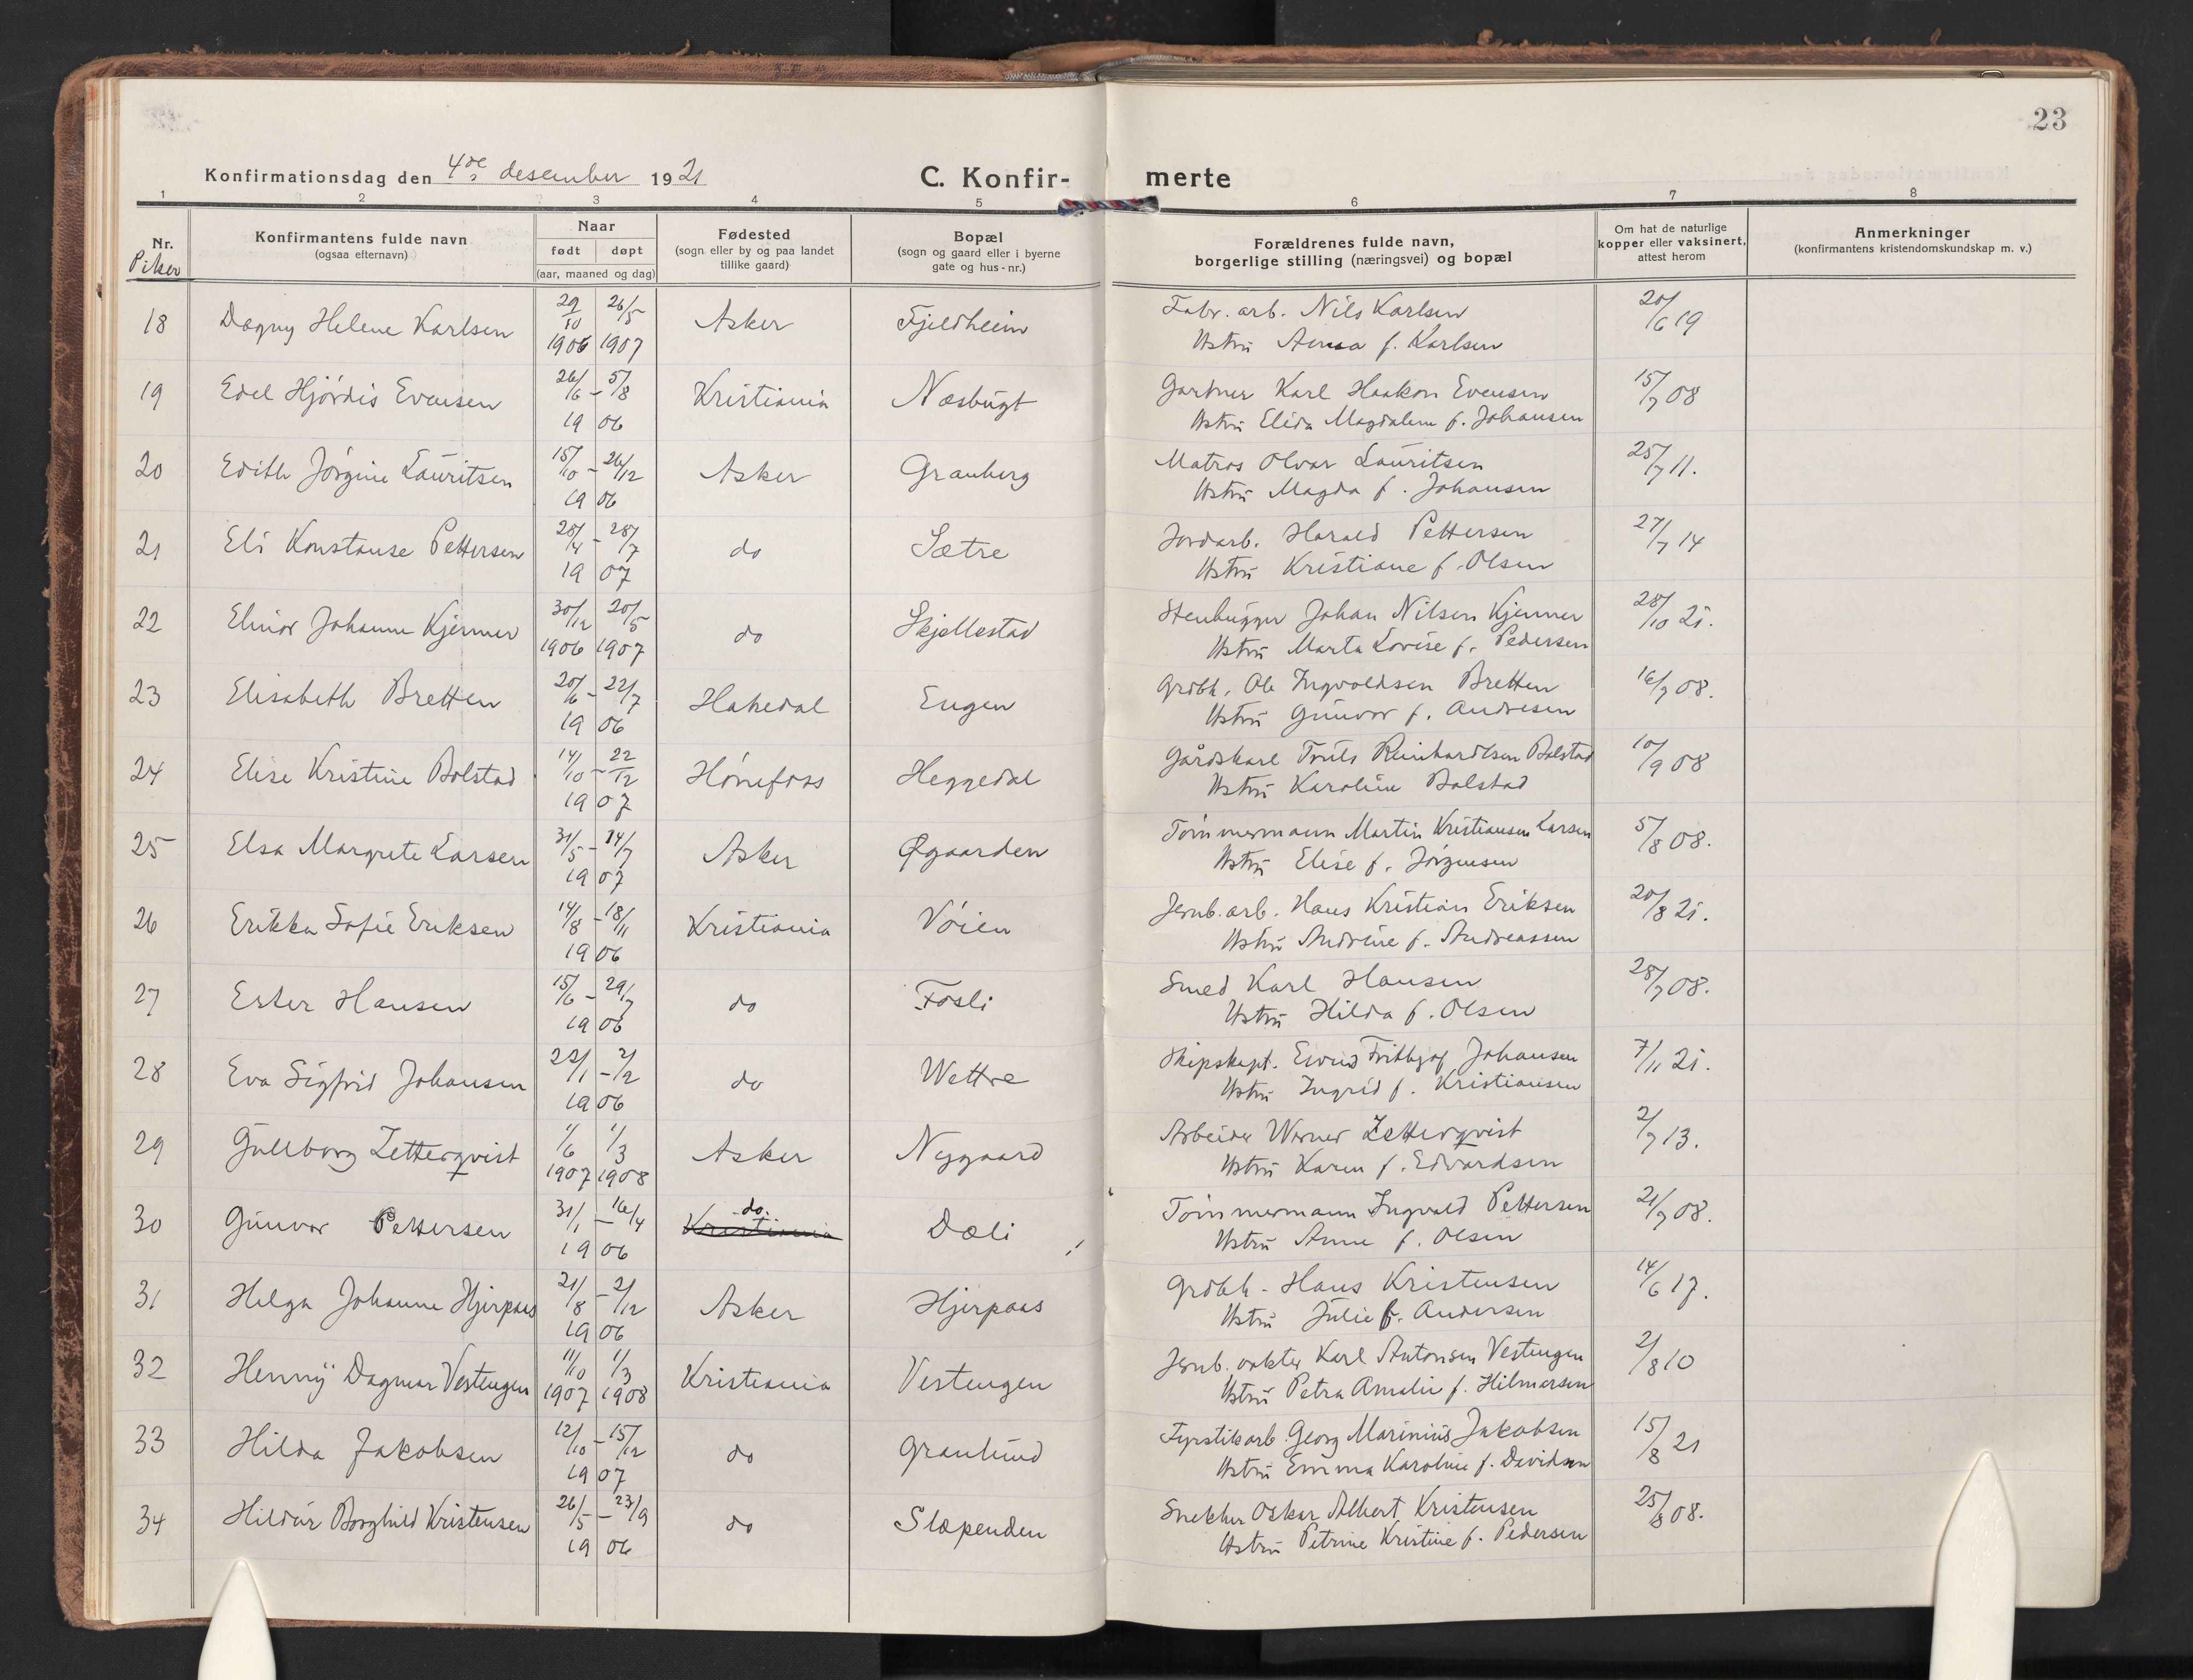 23
Konfirmationsdag den 4de desember 1921
C. Konfir-
merte
1 2 3 4 5 6 7 8
Nr.
Piker
Konfirmantens fulde navn
(ogsaa efternavn)
Naar
født døpt
(aar, maaned og dag)
Fødested
(sogn eller by og paa landet
tillike gaard)
Bopæl
(sogn og gaard eller i byerne
gate og hus-nr.)
Forældrenes fulde navn,
borgerlige stilling (næringsvei) og bopæl
Om hat de naturlige
kopper eller vaksinert,
attest herom
Anmerkninger
(konfirmantens kristendomskundskap m. v.)
18 Dagny Helene Karlsen 29/10 1906 26/5 1907 Asker Fjeldheim Fabr. arb. Nils Karlsen 20/6 19
Hstru Anna f. Karlsen
19 Edel Hjørdis Evensen 26/6 - 5/8 1906 Kristiania Næsbugt Gartner Karl Haakon Evensen 15/7 08
Hstru Elida Magdalene f. Johansen
20 Edith Jørgine Lauritsen 15/10 - 26/12 1906 Asker Granberg Matros Olvar Lauritsen 25/7 11.
Hstru Magda f. Johansen
21 Eli Konstanse Pettersen 28/4 - 28/7 1907 do Sætre Jordarb. Harald Pettersen 27/7 14
Hstru Kristiane f. Olsen
22 Elinor Johanne Kjenner 30/12 1906 20/5 1907 do Skjellestad Stenhugger Johan Nilsen Kjenner 28/10 21.
Hstru Marta Lovise f. Pedersen
23 Elisabeth Bretten 20/6 - 22/7 1906 Hakedal Engen Grdbk. Ole Ingvaldsen Bretten 16/7 08.
Hstru Gunvor f. Andresen
24 Elise Kristine Bolstad 14/10 - 22/12 1907 Hønefoss Heggedal Gårdskarl Truls Reinhardtsen Bolstad 10/9 08
Hstru Karoline Bolstad
25 Elsa Margrete Larsen 31/5 - 14/7 1907 Asker Øgaarden Tømmermann Martin Kristiansen Larsen 5/8 08.
Hstru Elise f. Jørgensen
26 Erikka Sofie Eriksen 14/8 - 18/11 1906 Kristiania Vøien Jernb. arb. Hans Kristian Eriksen 20/8 21.
Hstru Andrine f. Andreassen
27 Ester Hansen 15/6 - 29/7 1906 do Fosli Smed Karl Hansen 28/7 08.
Hstru Hilda f. Olsen
28 Eva Sigfrid Johansen 22/1 - 2/2 1906 do Wettre Skipskapt. Eivind Fritbjof Johansen 7/11 21.
Hstru Ingrid f. Kristiansen
29 Gullborg Zetterqvist 1/6 1907 1/3 1908 Asker Nygaard Arbeider Werner Zetterqvist 2/7 13.
Hstru Karen f. Edvardsen
30 Gunvor Pettersen 31/1 - 16/4 1906 Kristiania do. Dæli Tømmermann Ingvald Pettersen 21/7 08.
Hstru Anne f. Olsen
31 Helga Johanne Hjerpaas 21/8 - 2/12 1906 Asker Hjerpaas Grdbk. Hans Kristensen 14/6 17.
Hstru Julie f. Andersen
32 Henny Dagmar Vestengen 11/10 1907 1/3 1908 Kristiania Vestengen Jernb. vokter Karl Antonsen Vestengen 2/8 10
Hstru Petra Amalie f. Hilmarsen
33 Hilda Jakobsen 12/10 - 15/12 1907 do Granlund Fyrstikarb Georg Marinius Jakobsen 15/8 21
Hstru Emma Karoline f. Davidsen
34 Hildur Borghild Kristensen 26/5 - 23/9 1906 do Slæpenden Snekker Oskar Albert Kristensen 25/8 08.
Hstru Petrine Kristine f. Pedersen